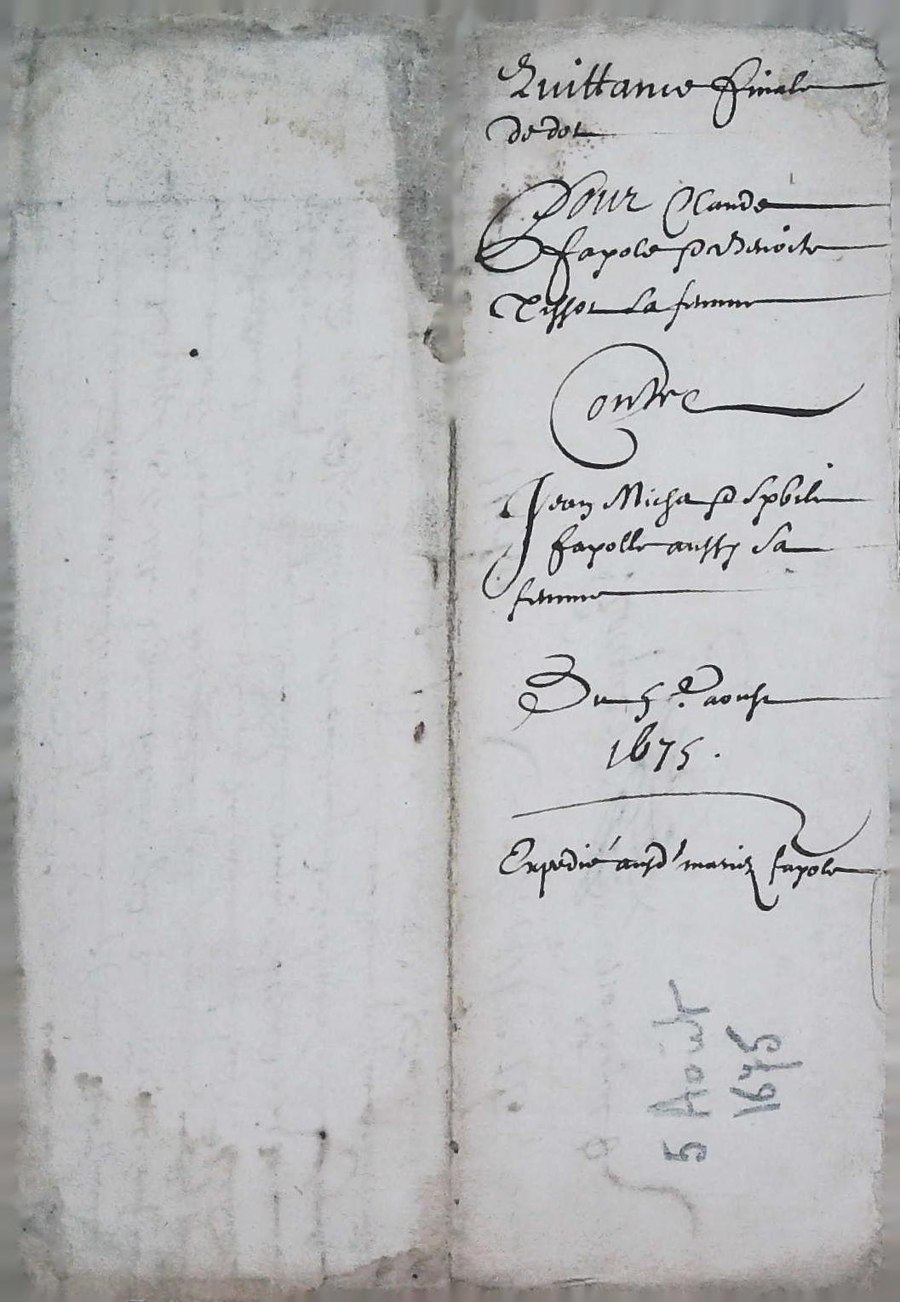 Quittance finale
de dot
Pour Claude
fapole & Benoite
Tissot sa femme
Contre
Jean Micha & Sybili
fapolle aussy sa
femme
Du 5e aoust
1675.
Expedié ausd' mariez fapole
5 Août
1675